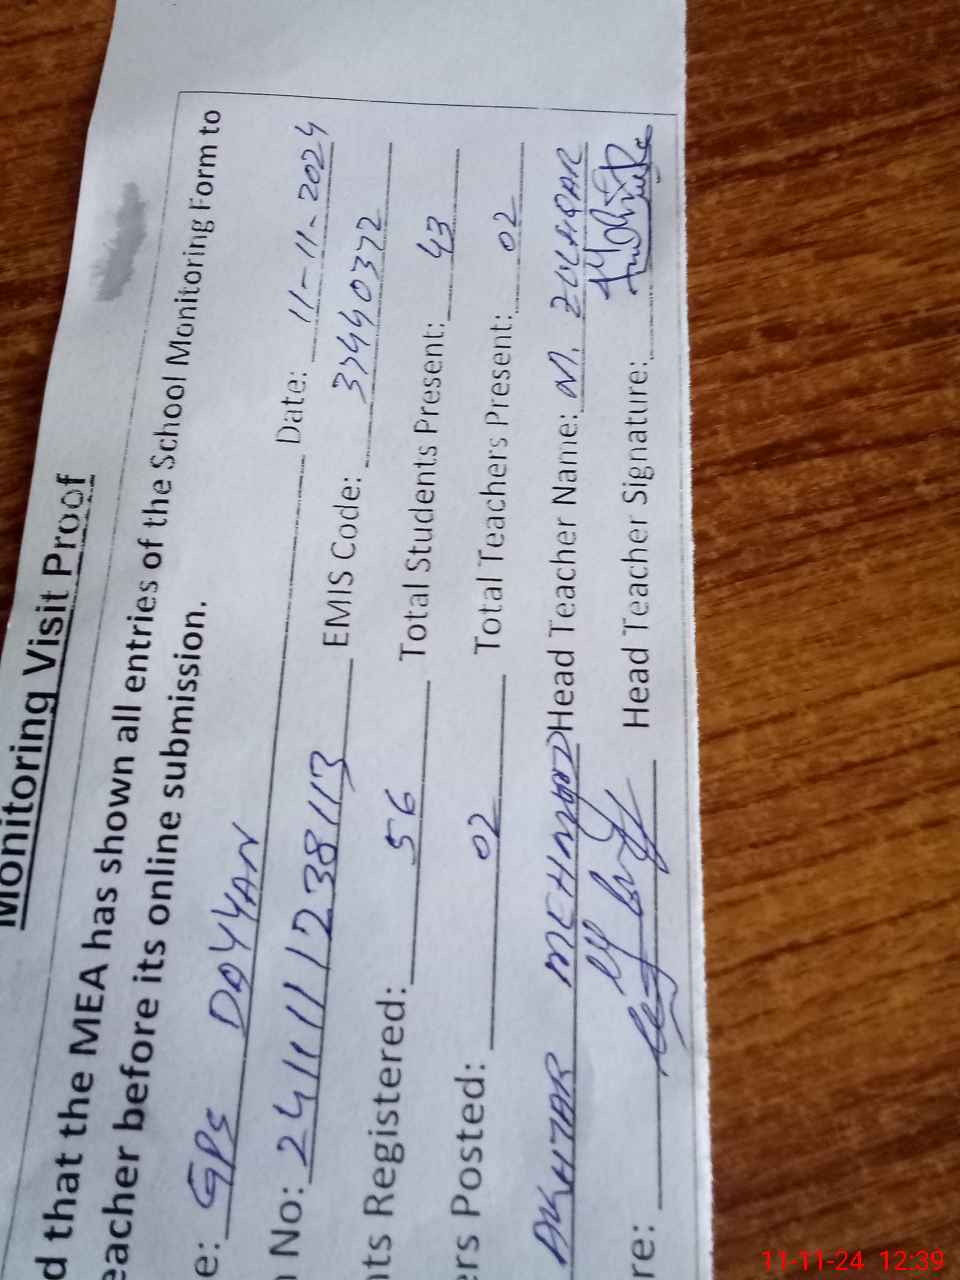 Monitoring Visit Proof
d that the MEA has shown all entries of the School Monitoring Form to
eacher before its online submission.
e: GPS DAYYAN Date: 11-11-2024
No: 241111238113 EMIS Code: 37440372
nts Registered: 56 Total Students Present: 43
ers Posted: 02 Total Teachers Present: 02
AKHTAR MEHMOOD Head Teacher Name: M. ZULFIQAR
re: Head Teacher Signature:
11-11-24 12:39